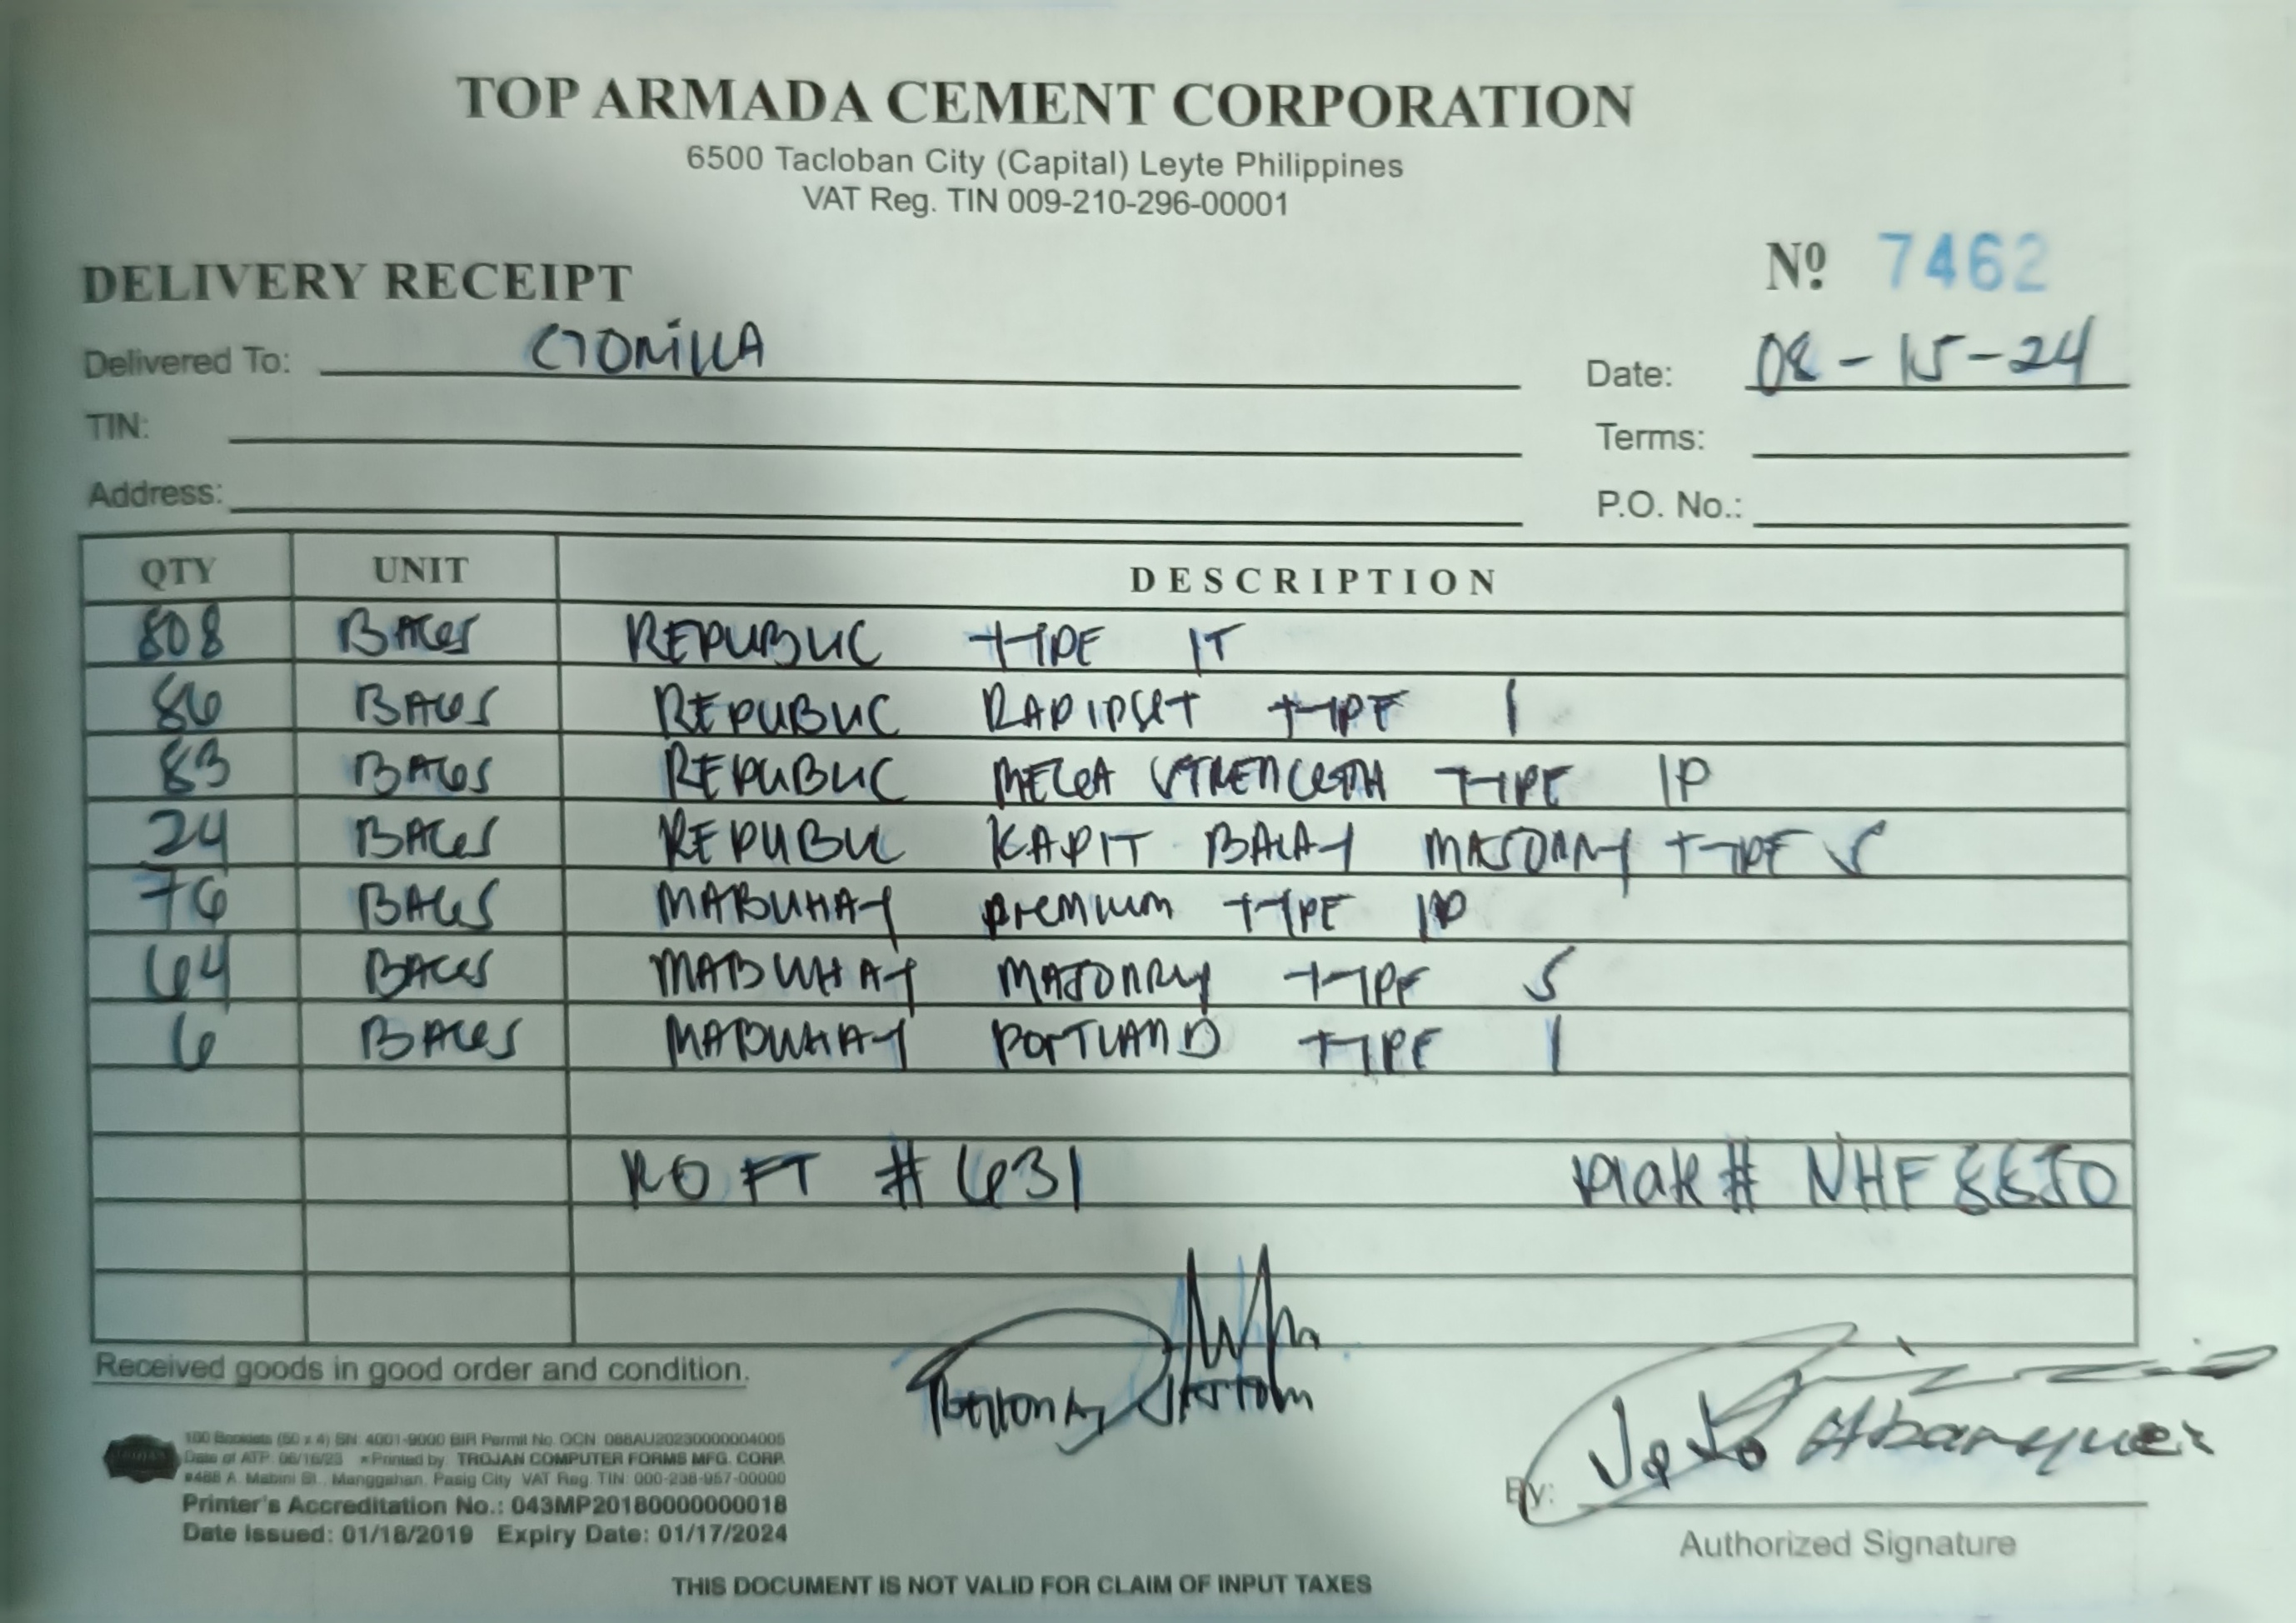 TOP ARMADA CEMENT CORPORATION
6500 Tacloban City (Capital) Leyte Philippines
VAT Reg. TIN 009-210-296-00001
DELIVERY RECEIPT
Nº 7462
Delivered To:
Date: 08-15-24
TIN:
Terms:
Address:
P.O. No.:
QTY UNIT DESCRIPTION
808 BAGS REPUBLIC TYPE 1T
86 BAGS REPUBLIC RAPIDSET TYPE 1
83 BAGS REPUBLIC MEGA STRENGTH TYPE 1P
24 BAGS REPUBLIC KAPIT BALAY MASONRY TYPE S
76 BAGS MABUHAY PREMIUM TYPE 1P
64 BAGS MABUHAY MASONRY TYPE S
6 BAGS MABUHAY PORTLAND TYPE 1
RO FT # 631 Plate # NHF 8850
Received goods in good order and condition.
100 Booklets (50 x 4) SN: 4001-9000 BIR Permit No. OCN: 088AU20230000004005
Date of ATP: 06/16/23 Printed by: TROJAN COMPUTER FORMS MFG. CORP.
#488 A. Mabini St., Manggahan, Pasig City VAT Reg. TIN: 000-238-957-00000
Printer's Accreditation No.: 043MP20180000000018
Date Issued: 01/18/2019 Expiry Date: 01/17/2024
By: Abanquez
Authorized Signature
THIS DOCUMENT IS NOT VALID FOR CLAIM OF INPUT TAXES